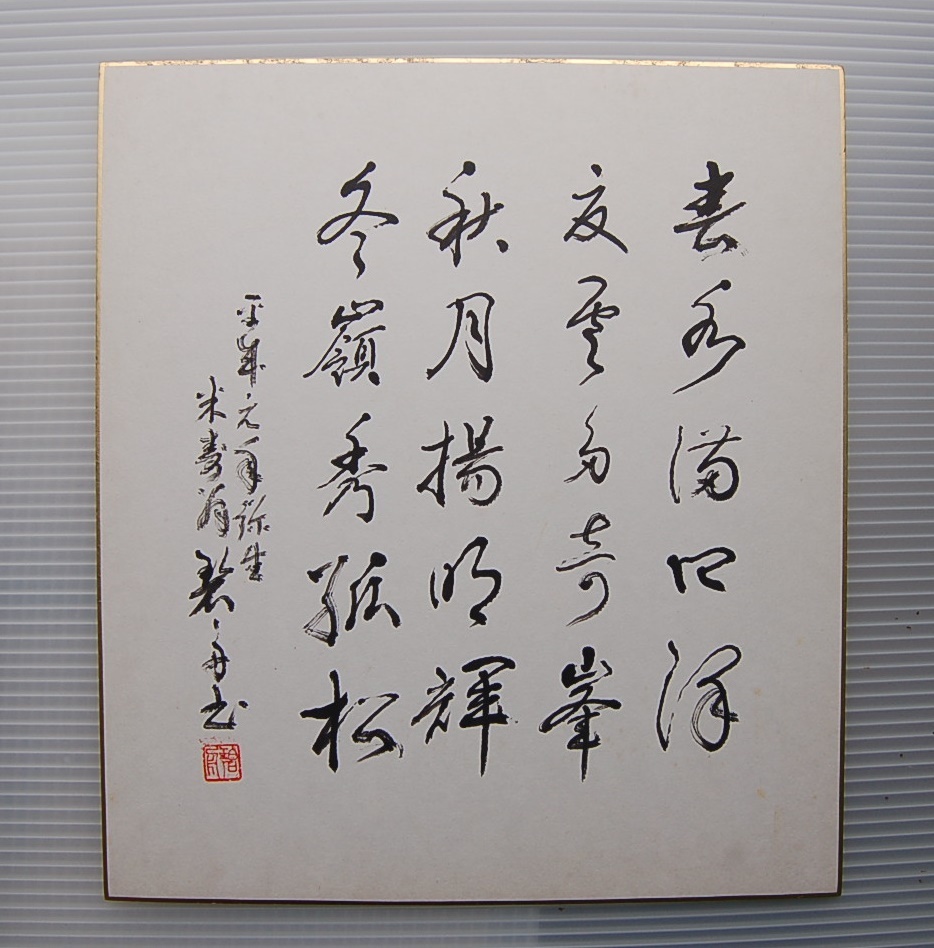 春水満四澤
夏雲多奇峯
秋月揚明輝
冬嶺秀孤松
平成元年弥生
米寿翁 書